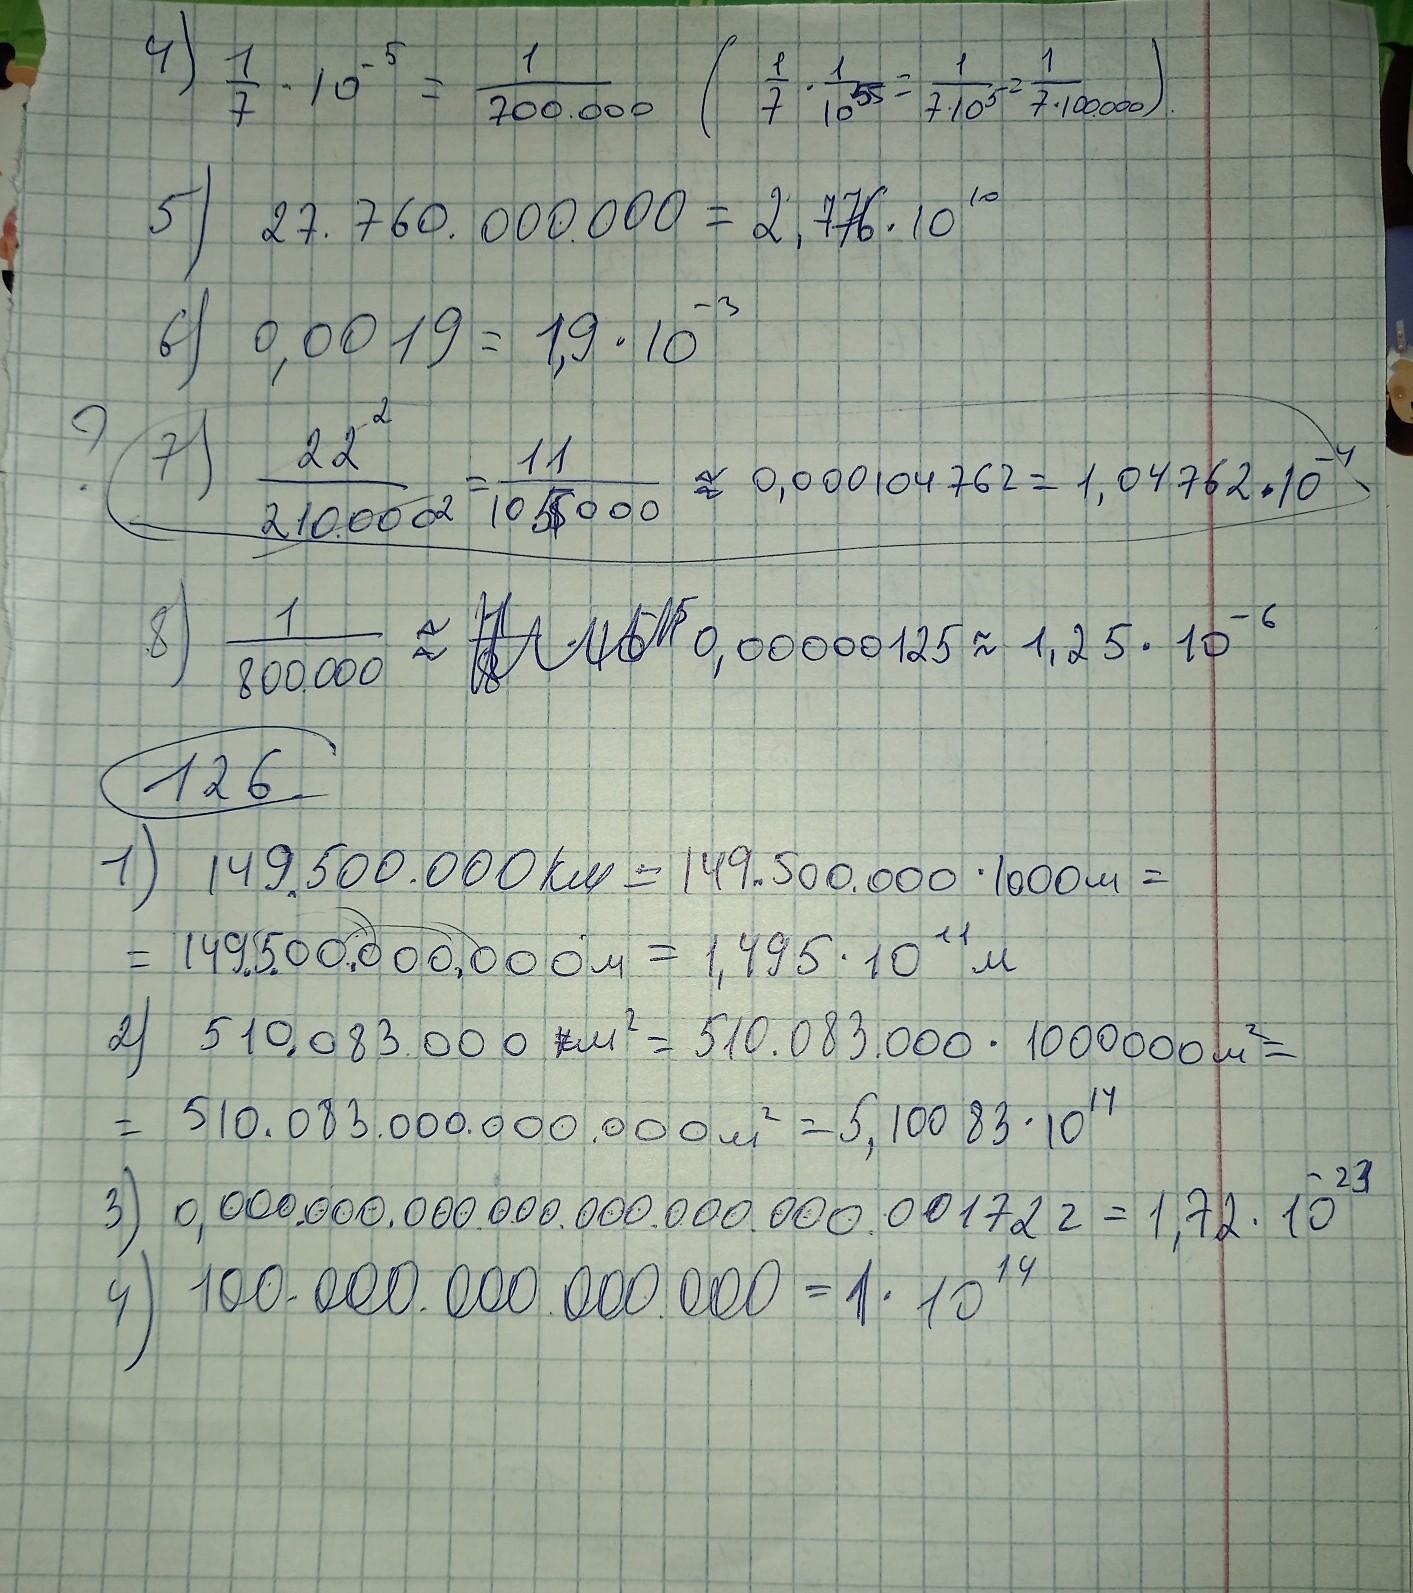 4) 1/7 · 10^-5 = 1/700.000 (1/7 · 1/10^5 = 1/7·10^5 = 1/7·100.000).
5) 27.760.000.000 = 2,776 · 10^10
6) 0,0019 = 1,9 · 10^-3
? 7) 22^2/210.000^2 = 11/105000 ≈ 0,000104762 = 1,04762 · 10^-4
8) 1/800.000 ≈ 0,00000125 ≈ 1,25 · 10^-6
126
1) 149.500.000 км = 149.500.000 · 1000м =
= 149.500.000.000м = 1,495 · 10^11 м
2) 510.083.000 км² = 510.083.000 · 1000000м² =
= 510.083.000.000.000м² = 5,10083 · 10^14
3) 0,000.000.000.000.000.000.000.00172г = 1,72 · 10^-23
4) 100.000.000.000.000 = 1 · 10^14